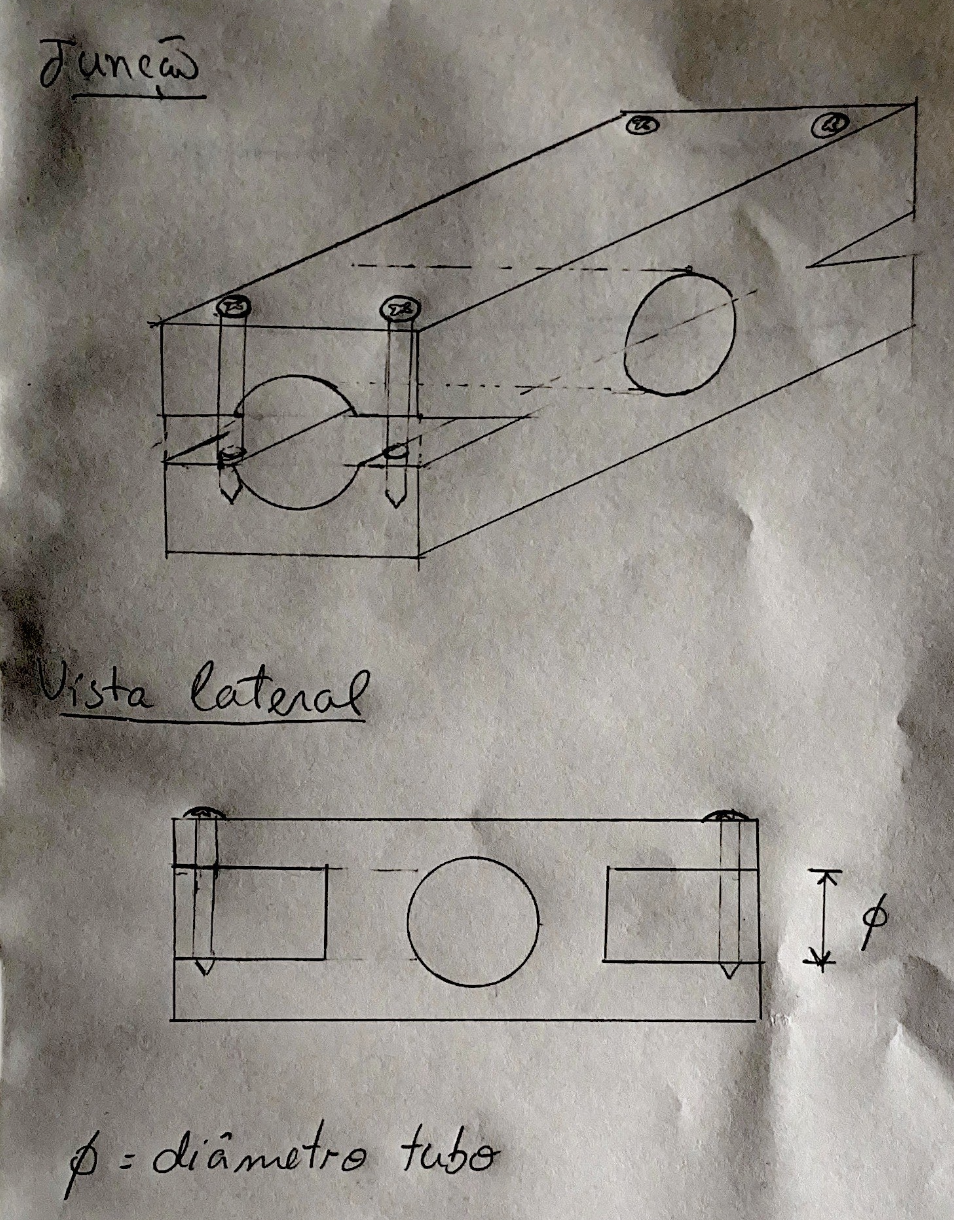 Junção
Vista lateral
φ
φ = diâmetro tubo